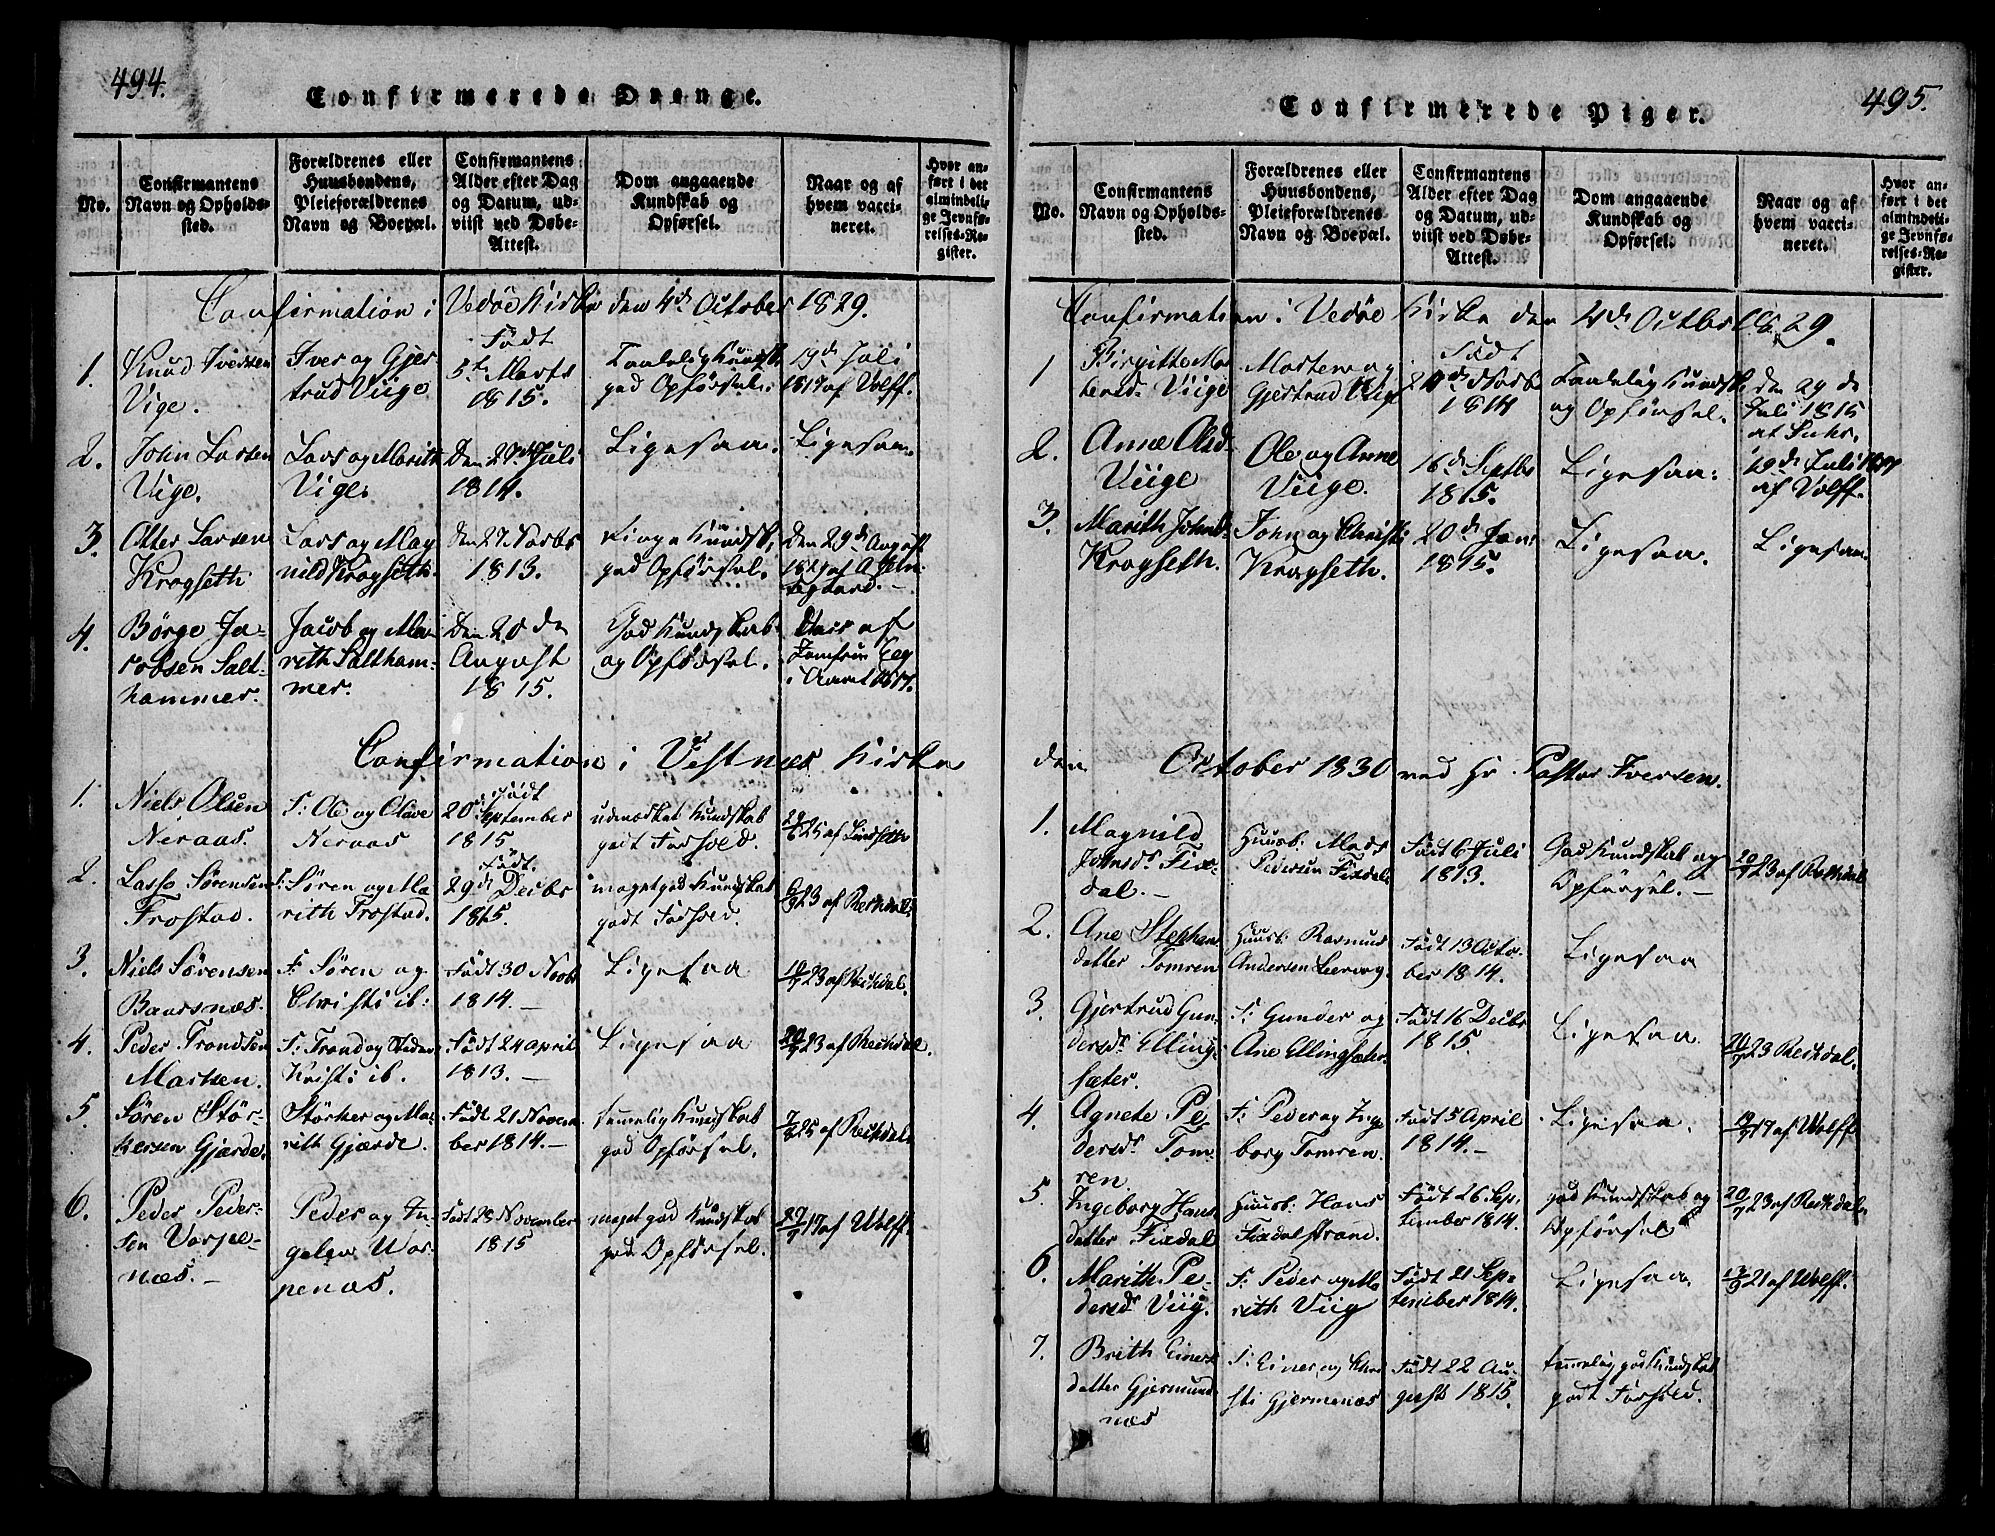 494.
Confirmerede Drenge.
No.
Confirmantens
Navn og Opholds-
sted.
Forældrenes eller
Huusbondens,
Pleieforældrenes
Navn og Boepæl.
Confirmantens
Alder efter Dag
og Datum, ud-
viist ved Døbe-
Attest.
Dom angaaende
Kundskab og
Opførsel.
Naar og af
hvem vacci-
neret.
Hvor an-
ført i det
almindeli-
ge Jevnfø-
relses-Re-
gister.
Confirmation i Vedøe Kirke den 4de October 1829.
1.
Knud Iversen
Vige.
Iver og Gjer
trud Viige
Født
5te Marts
1815.
Taalelig Kundsk.
god Opførsel.
19de Juli
1817 af Wolff.
2.
John Larsen
Vige.
Lars og Marith
Vige.
Den 27de Juli
1814.
Ligesaa.
Ligesaa.
3.
Otter Larsen
Kragseth
Lars og Mag
nild Kragseth.
Den 27 Novbr
1813.
Ringe Kundsk,
god Opførsel.
Den 29de August
4.
Børge Ja-
cobsen Salt-
hammer.
Jacob og Ma-
rith Saltham-
mer.
Den 20de
August
1815.
God Kundskab
og Opførsel.
af
Jomfru
i Aaret 1817.
Confirmation i Vestnæs Kirke
1.
Niels Olsen
Neraas.
F: Ole og Olave
Neraas
Født
20 September
1815
udmærket Kundskab
godt Forhold.
25 af Lindsæter
2.
Lasse Sørensen
Frostad.
F: Søren og Ma
rith Frostad.
Født
29de Decbr
1815.
meget god Kundskab
godt Forhold.
6/9 23 af Rekdal.
3.
Niels Sørensen
Baarsnæs.
F: Søren og
Christi ib:
Født 30 Novbr
1814.—
Ligesaa
19/9 23 af Rekdal.
4.
Peder Trondsen
F: Trond og
Kristi ib.
Født 24 april
1813.—
Ligesaa
23 af Rekdal.
5.
Søren Stør-
kersen Gjærde.
Størker og Ma-
rith Gjærde.
Født 21 Novem
ber 1814.—
temmelig Kundskab
god Opførsel.
25 af Rekdal
6.
Peder Peder-
sen Vorpe-
næs.—
Peder og In-
gelev Wor-
penæs.
Født 28 November
1815
meget god Kundskab
god Opførsel.
17 af Wolff
495.
Confirmerede Piger.
No.
Confirmantens
Navn og Opholds-
sted.
Forældrenes eller
Huusbondens,
Pleieforældrenes
Navn og Boepæl.
Confirmantens
Alder efter Dag
og Datum, ud-
viist ved Døbe-
Attest.
Dom angaaende
Kundskab og
Opførsel.
Naar og af
hvem vacci-
neret.
Hvor an-
ført i det
almindeli-
ge Jevnfø-
relses-Re-
gister.
Confirmation i Vedøe Kirke den 4de Octbr 1829.
1
Birgitte Mor
tensd. Viige
Morten og
Gjertrud Viige
Født
Novb
1814
Taalelig Kundsk.
og Opførsel.
Juli 1815
2.
Anne Olsd.
Viige
Ole og Anne
Viige.
16de Septbr
1815.
Ligesaa.
19de Juli 1817
af Wolff.
3.
Marith Johnsd.
Kragseth.
John og Christi
Kragseth.
20de Jan:
1815.
Ligesaa.
Ligesaa.
den October 1830 ved Hr Pastor Iversen.
1.
Magnild
Johnsdr. Fix
dal.—
Huusb: Mads
Pedersen Fixdal
Født 6 Juli
1813.
God Kundskab og
Opførsel.—
23 af Rekdal
2.
Ane Stephans
datter Tomren
Huusb: Rasmus
Andersen Leervog.
Født 13 Octo-
ber 1814.
Ligesaa
3.
Gjertrud Gun-
dersdr. Elling-
sæter.
F: Gunder og
Ane Ellingsæter.
Født 16 Decbr
1815.
Ligesaa.
23 Rekdal.
4.
Agnete Pe-
dersdr. Tom-
ren.
F: Peder og Inge
borg Tomren.
Født 5 April
1814.—
Ligesaa.
17 af Wolff
5
Ingeborg Hans
datter Fixdal
Huusb: Hans
Fixdalstrand.
Født 26 Sep-
tember 1814.
god Kundskab og
Opførsel
23 af Rekdal
6.
Marith Pe-
dersdr. Viig.
F: Peder og Ma
rith Viig
Født 21 Sep-
tember 1814.
Ligesaa.
21 af Wolff.
7.
Brith Einers
datter Gjermund
næs
F: Einer og Chri
sti Gjermenæs
Født 22 Au-
gust 1815.
temmelig god Kundskab
godt Forhold.